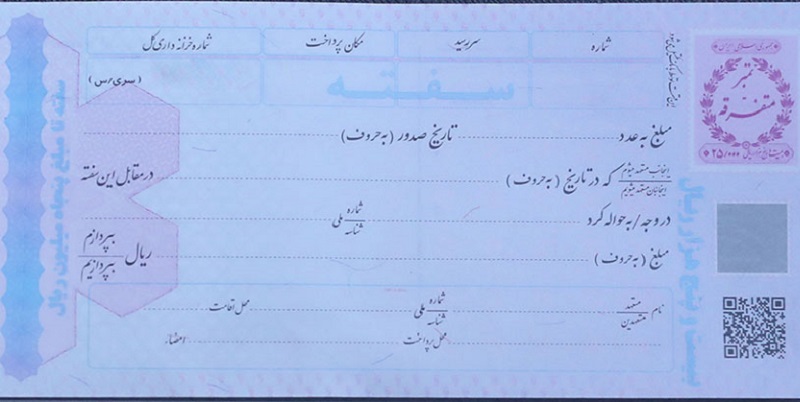 شماره سررسید مکان پرداخت شماره خزانه داری کل
سفته
(سری/س)
جمهوری اسلامی ایران
تمبر
متفرقه
۲۵/۰۰۰
مبلغ به عدد تاریخ صدور (به حروف)
اینجانب متعهد میشوم
اینجانبان متعهد میشویم
که در تاریخ (به حروف) در مقابل این سفته
در وجه/به حواله کرد شماره ملی
شناسه
مبلغ (به حروف) ریال بپردازم
بپردازیم
نام متعهد
متعهدین
شماره ملی
شناسه
محل اقامت
محل پرداخت امضاء
سفته تا مبلغ پنجاه میلیون ریال
بیست و پنج هزار ریال